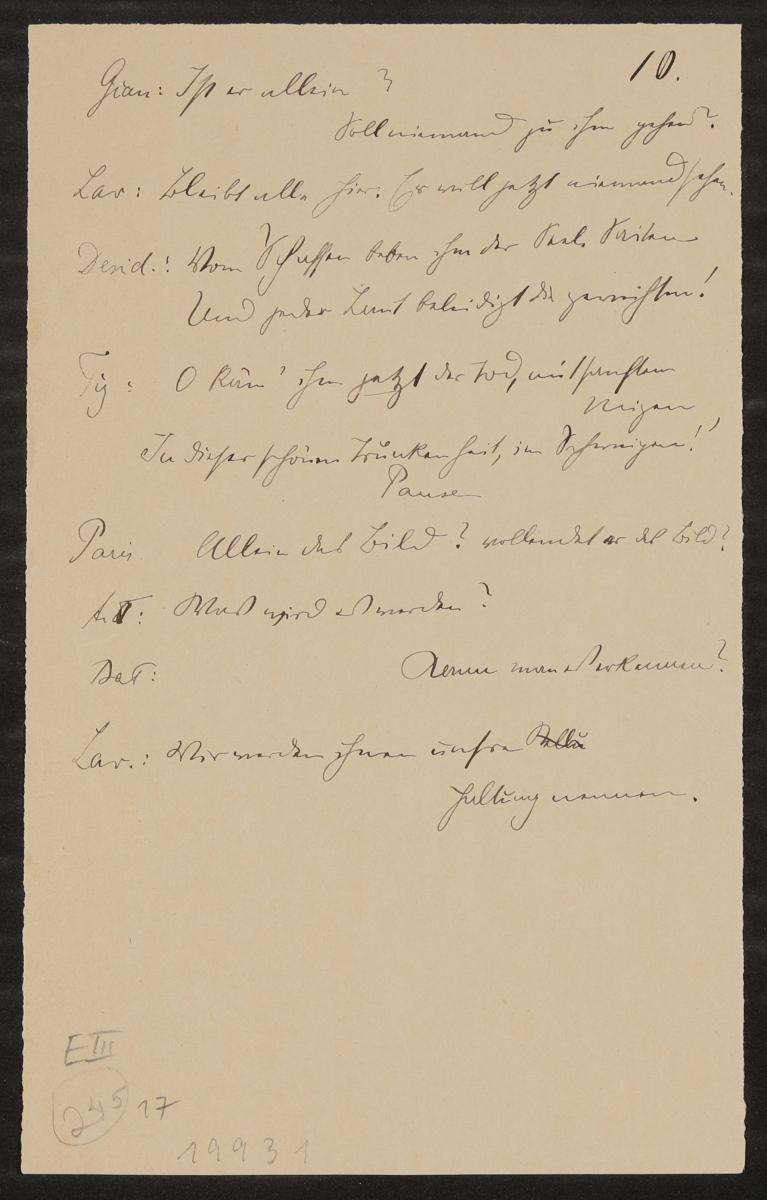 10.
Gian: Ist er allein?
Soll niemand zu ihm gehen?
Lav: Bleibt alle hier. Er will jetzt niemand sehen.
Desid.: Vom Schaffen beben ihm der Seele Saiten
Und jeder Laut beleidigt die geweihten!
Tiz: O käm' ihm jetzt der Tod, mit sanftem
Neigen,
In dieser schönen Trunkenheit, im Schweigen!
Pause
Paris Allein das Bild? vollendet er das Bild?
Ant: Was wird es werden?
Bat:
Kann man es erkennen?
Lav.: Wir werden ihnen unsre
Haltung nennen.
E III
245 17
19931